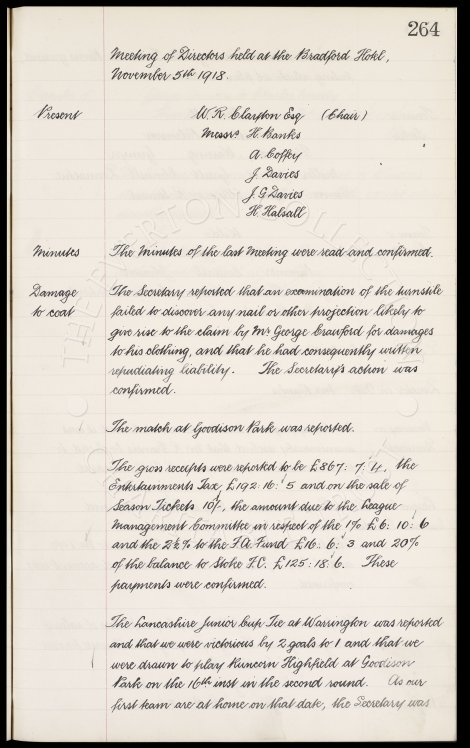 264
Meeting of Directors held at the Bradford Hotel,
November 5th 1918.
Present W. R. Clayton Esq (Chair)
Messrs H. Banks
A. Coffey
J. Davies
J. G. Davies
H. Halsall
Minutes The Minutes of the last Meeting were read and confirmed.
Damage The Secretary reported that an examination of the turnstile
to coat failed to discover any nail or other projection likely to
give rise to the claim by Mr George Crawford for damages
to his clothing, and that he had consequently written
repudiating liability. The Secretary's action was
confirmed.
The match at Goodison Park was reported.
The gross receipts were reported to be £867: 7: 4, the
Entertainments Tax £192: 16: 5 and on the sale of
Season Tickets 10/-, the amount due to the League
Management Committee in respect of the 1% £6: 10: 6
and the 2½% to the F.A. Fund £16: 6: 3 and 20%
of the balance to Stoke F.C. £125: 18: 6. These
payments were confirmed.
The Lancashire Junior Cup Tie at Warrington was reported
and that we were victorious by 2 goals to 1 and that we
were drawn to play Runcorn Highfield at Goodison
Park on the 16th inst in the second round. As our
first team are at home on that date, the Secretary was
THE EVERTON COLLECTION